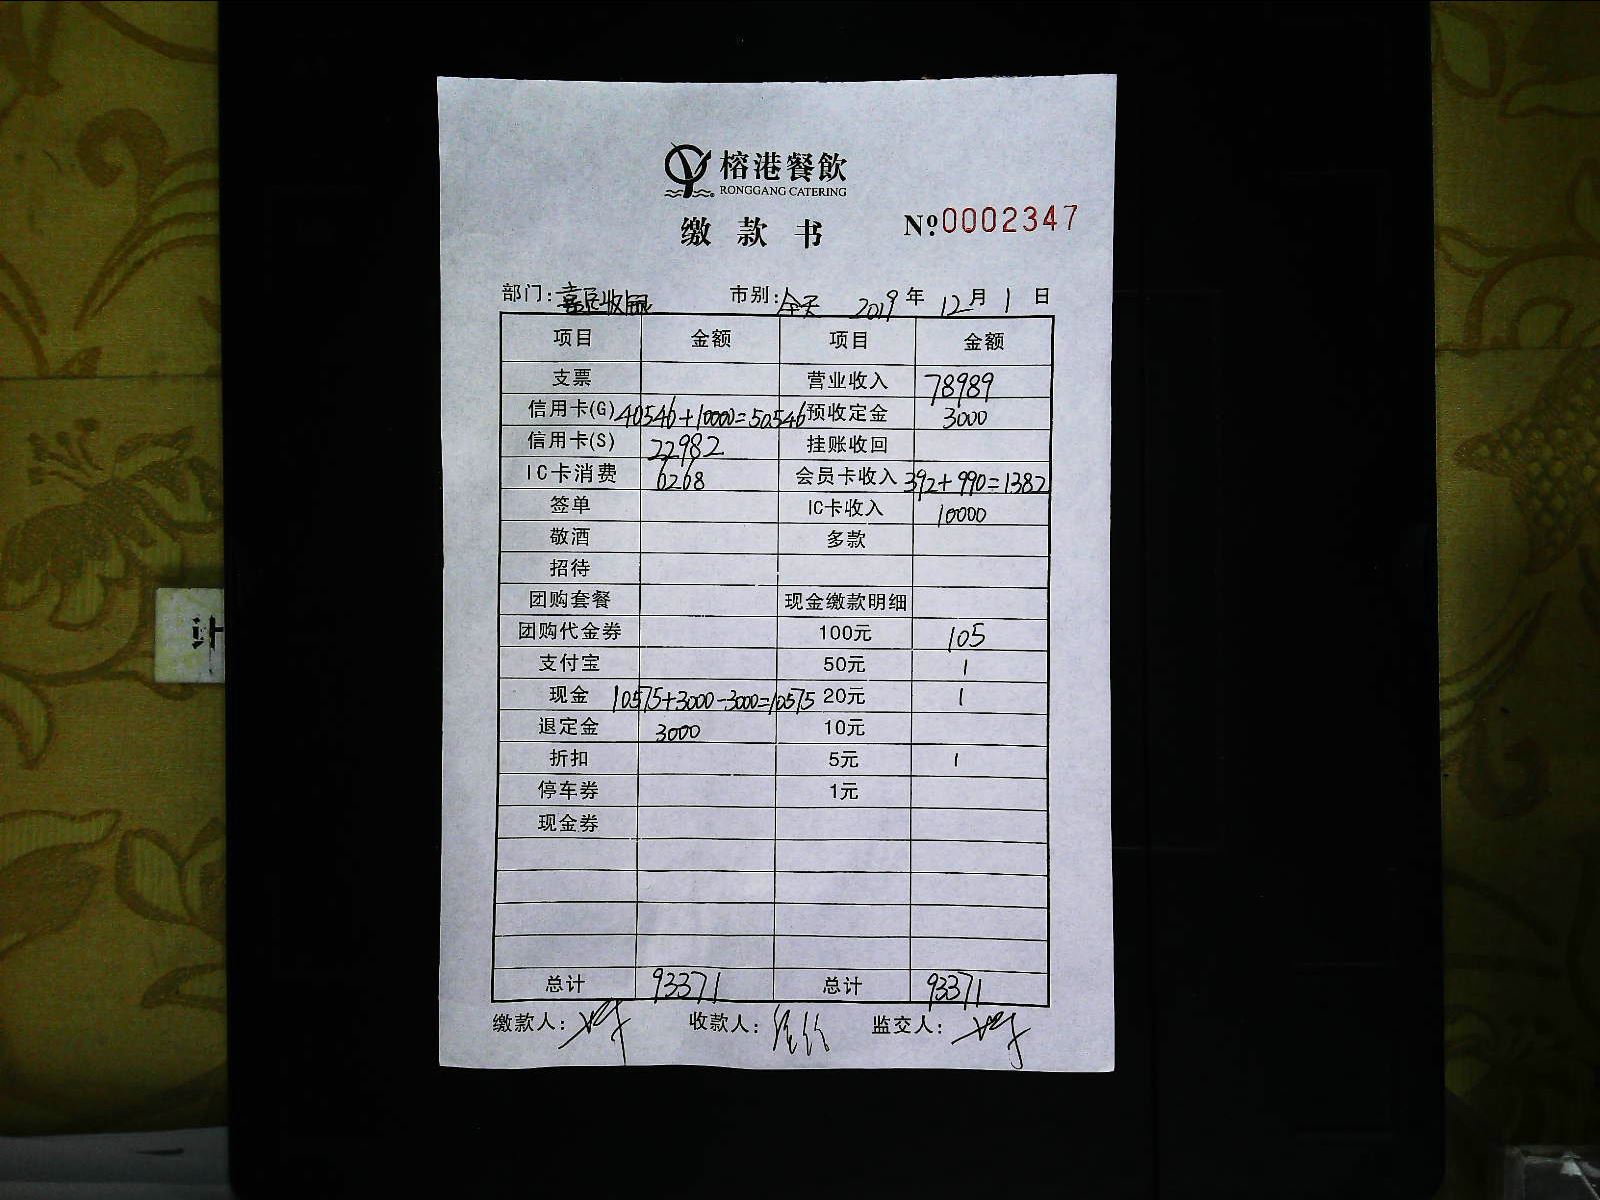 榕港餐飲
RONGGANG CATERING
缴款书 №0002347
部门: 市别:全天 2019年12月1日
项目 金额 项目 金额
支票 营业收入 78989
信用卡(G) 40546+10000=50546 预收定金 3000
信用卡(S) 22982 挂账收回
IC卡消费 6268 会员卡收入 392+990=1382
签单 IC卡收入 10000
敬酒 多款
招待
团购套餐 现金缴款明细
团购代金券 100元 105
支付宝 50元 1
现金 10575+3000-3000=10575 20元 1
退定金 3000 10元
折扣 5元 1
停车券 1元
现金券
总计 93371 总计 93371
缴款人: 收款人: 监交人: